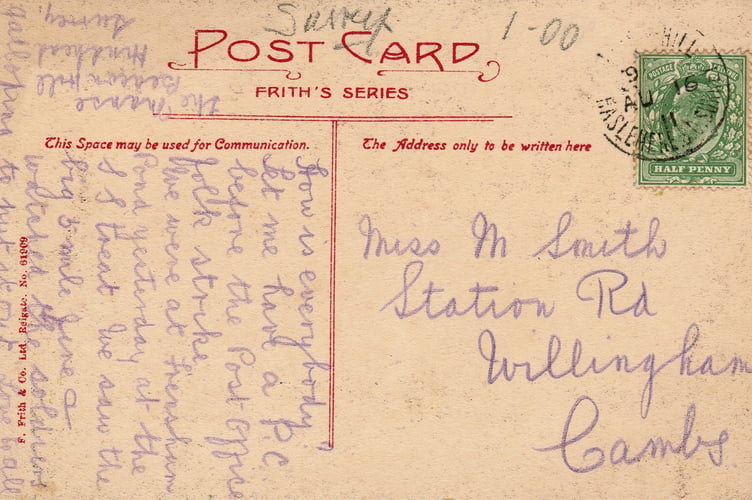 Surrey
1-00
POST CARD
FRITH'S SERIES
This Space may be used for Communication.
The Address only to be written here
HASLEMERE
AU 16
11
POSTAGE
HALF PENNY
Miss M Smith
Station Rd
Willingham
Cambs
The Manse
Beacon Hill
Hindhead
Surrey
How is everybody?
Let me have a P.C
before the Post Office
folk strike.
We were at Frensham
Pond yesterday at the
S S treat We saw the
big 5 mile fire &
watched the soldiers
to put it out Love to all
F. Frith & Co. Ltd. Reigate. No. 61909